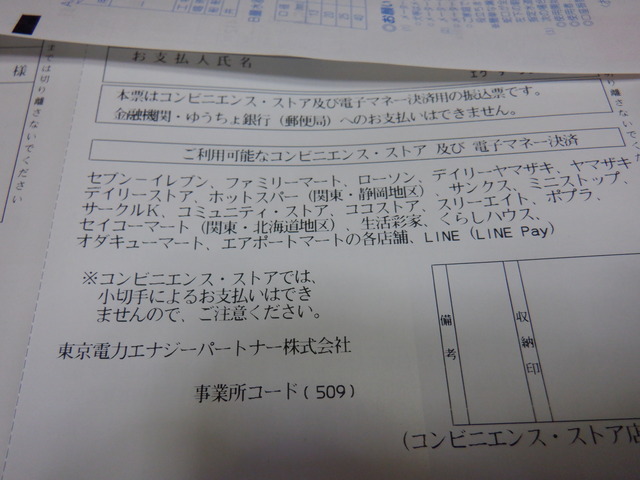 様
までは切り離さないでください
お支払人氏名
本票はコンビニエンス・ストア及び電子マネー決済用の振込票です。
金融機関・ゆうちょ銀行（郵便局）へのお支払いはできません。
ご利用可能なコンビニエンス・ストア 及び 電子マネー決済
セブン－イレブン、ファミリーマート、ローソン、デイリーヤマザキ、ヤマザキ
デイリーストア、ホットスパー（関東・静岡地区）、サンクス、ミニストップ、
サークルK、コミュニティ・ストア、ココストア、スリーエイト、ポプラ、
セイコーマート（関東・北海道地区）、生活彩家、くらしハウス、
オダキューマート、エアポートマートの各店舗、LINE（LINE Pay）
※コンビニエンス・ストアでは、
小切手によるお支払いはでき
ませんので、ご注意ください。
東京電力エナジーパートナー株式会社
事業所コード(509)
備考
収納印
(コンビニエンス・ストア店